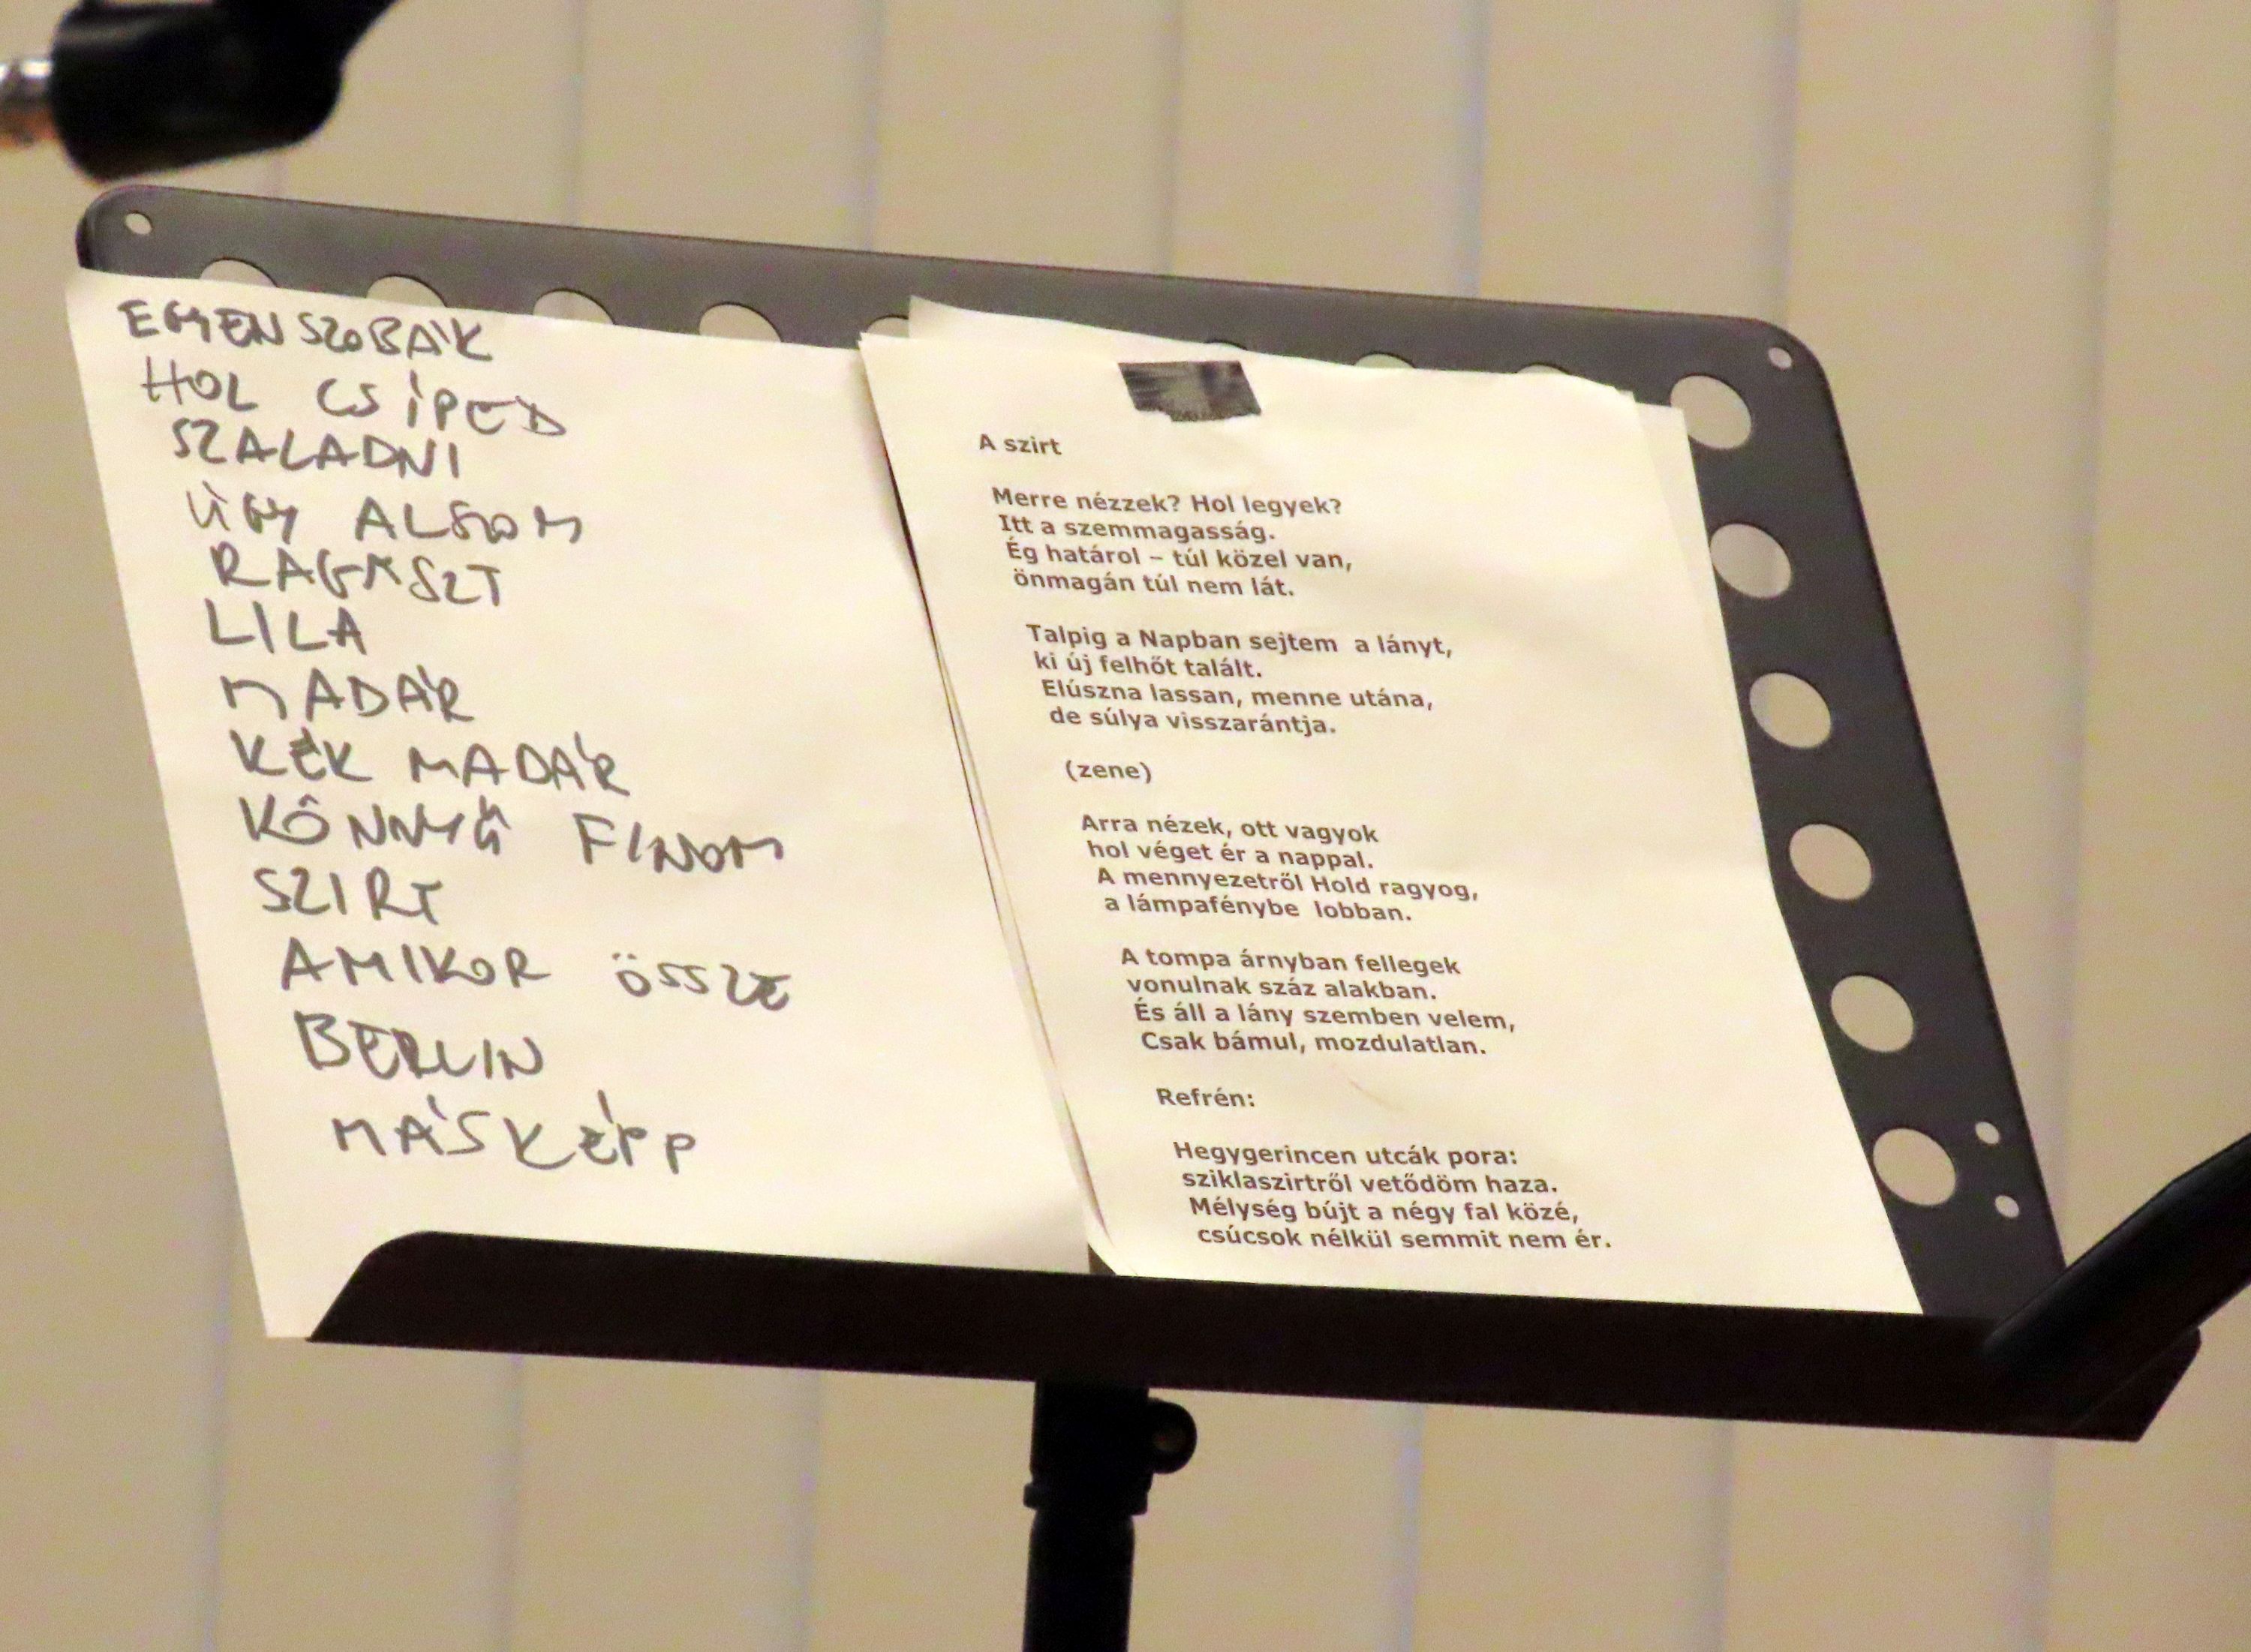 EGYENSZOBÁK
HOL CSÍPED
SZALADNI
ÚGY ALSZOM
RAGASZT
LILA
MADÁR
KÉK MADÁR
KÖNNYŰ FINOM
SZIRT
AMIKOR ÖSSZE
BERLIN
MÁSKÉPP
A szirt
Merre nézzek? Hol legyek?
Itt a szemmagasság.
Ég határol – túl közel van,
önmagán túl nem lát.
Talpig a Napban sejtem a lányt,
ki új felhőt talált.
Elúszna lassan, menne utána,
de súlya visszarántja.
(zene)
Arra nézek, ott vagyok
hol véget ér a nappal.
A mennyezetről Hold ragyog,
a lámpafénybe lobban.
A tompa árnyban fellegek
vonulnak száz alakban.
És áll a lány szemben velem,
Csak bámul, mozdulatlan.
Refrén:
Hegygerincen utcák pora:
sziklaszirtről vetődöm haza.
Mélység bújt a négy fal közé,
csúcsok nélkül semmit nem ér.